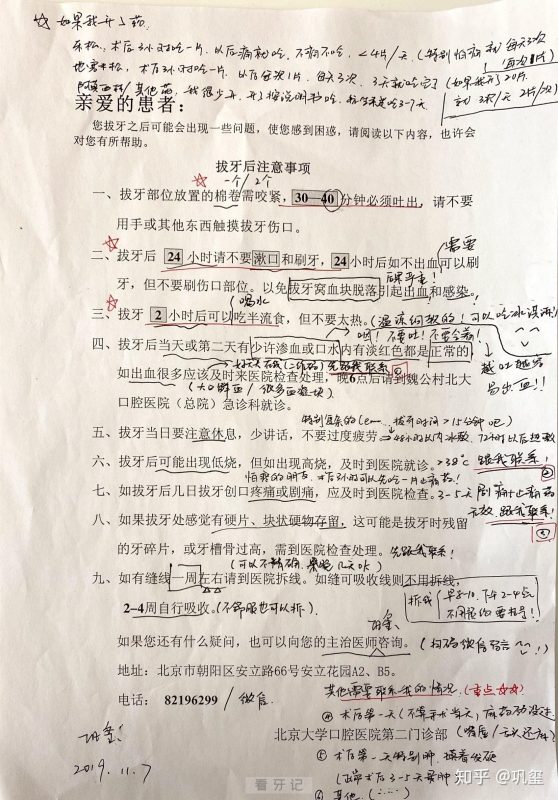 ☆ 如果我开了药.
乐松,术后3小时吃一片,以后痛就吃,不痛不吃,<4片/天(特别怕痛就每天3次
每次1片)
地塞米松,术后3小时吃一片,以后每次1片,每天3次,3天就吃完了(如果我开了20片
就3次/天 2片/次)
阿莫西林/其他药,我很少开,开了按说明书吃,抗生素吃3-7天
亲爱的患者:
您拔牙之后可能会出现一些问题,使您感到困惑,请阅读以下内容,也许会
对您有所帮助。
拔牙后注意事项
一个/2个
一、拔牙部位放置的棉卷需咬紧,30—40分钟必须吐出,请不要
用手或其他东西触摸拔牙伤口。
需要
二、拔牙后 24 小时请不要漱口和刷牙,24小时后如不出血可以刷
牙,但不要刷伤口部位。以免拔牙窝血块脱落引起出血和感染。
后果严重!
喝水
三、拔牙 2 小时后可以吃半流食,但不要太热。(温凉的!可以吃冰淇淋)
咽!不要吐!不要含着!
四、拔牙后当天或第二天有少许渗血或口水内有淡红色都是正常的,
越吐越容
易出血!!
先跟我联系
如出血很多应该及时来医院检查处理,晚6点后请到魏公村北大
(大口鲜血/很多血块)
口腔医院(总院)急诊科就诊。
拔牙时间>15分钟吧)
五、拔牙当日要注意休息,少讲话,不要过度疲劳→48小时以内冰敷,72小时以后热敷
六、拔牙后可能出现低烧,但如出现高烧,及时到医院就诊。>38℃ 跟我联系!
怕痛的朋友,术后3小时可以先吃一片止痛药!
七、如拔牙后几日拔牙创口疼痛或剧痛,应及时到医院检查。3-5天剧痛+止痛药
无效,跟我联系!
八、如果拔牙处感觉有硬片、块状硬物存留,这可能是拔牙时残留
的牙碎片,或牙槽骨过高,需到医院检查处理。先跟我联系!
九、如有缝线一周左右请到医院拆线。如缝可吸收线则不用拆线,
2–4周自行吸收。(不舒服也可以拆)
拆线 早8-10,下午2-4点
不用挂号!
如果您还有什么疑问,也可以向您的主治医师咨询。(扫码微信留言~!)
地址:北京市朝阳区安立路66号安立花园A2、B5。
电话: 82196299/微信
其他需要联系我的情况(重点☆☆)
北京大学口腔医院第二门诊部
术后第一天特别肿
2019.11.7
其他
看牙记
知乎 @巩玺